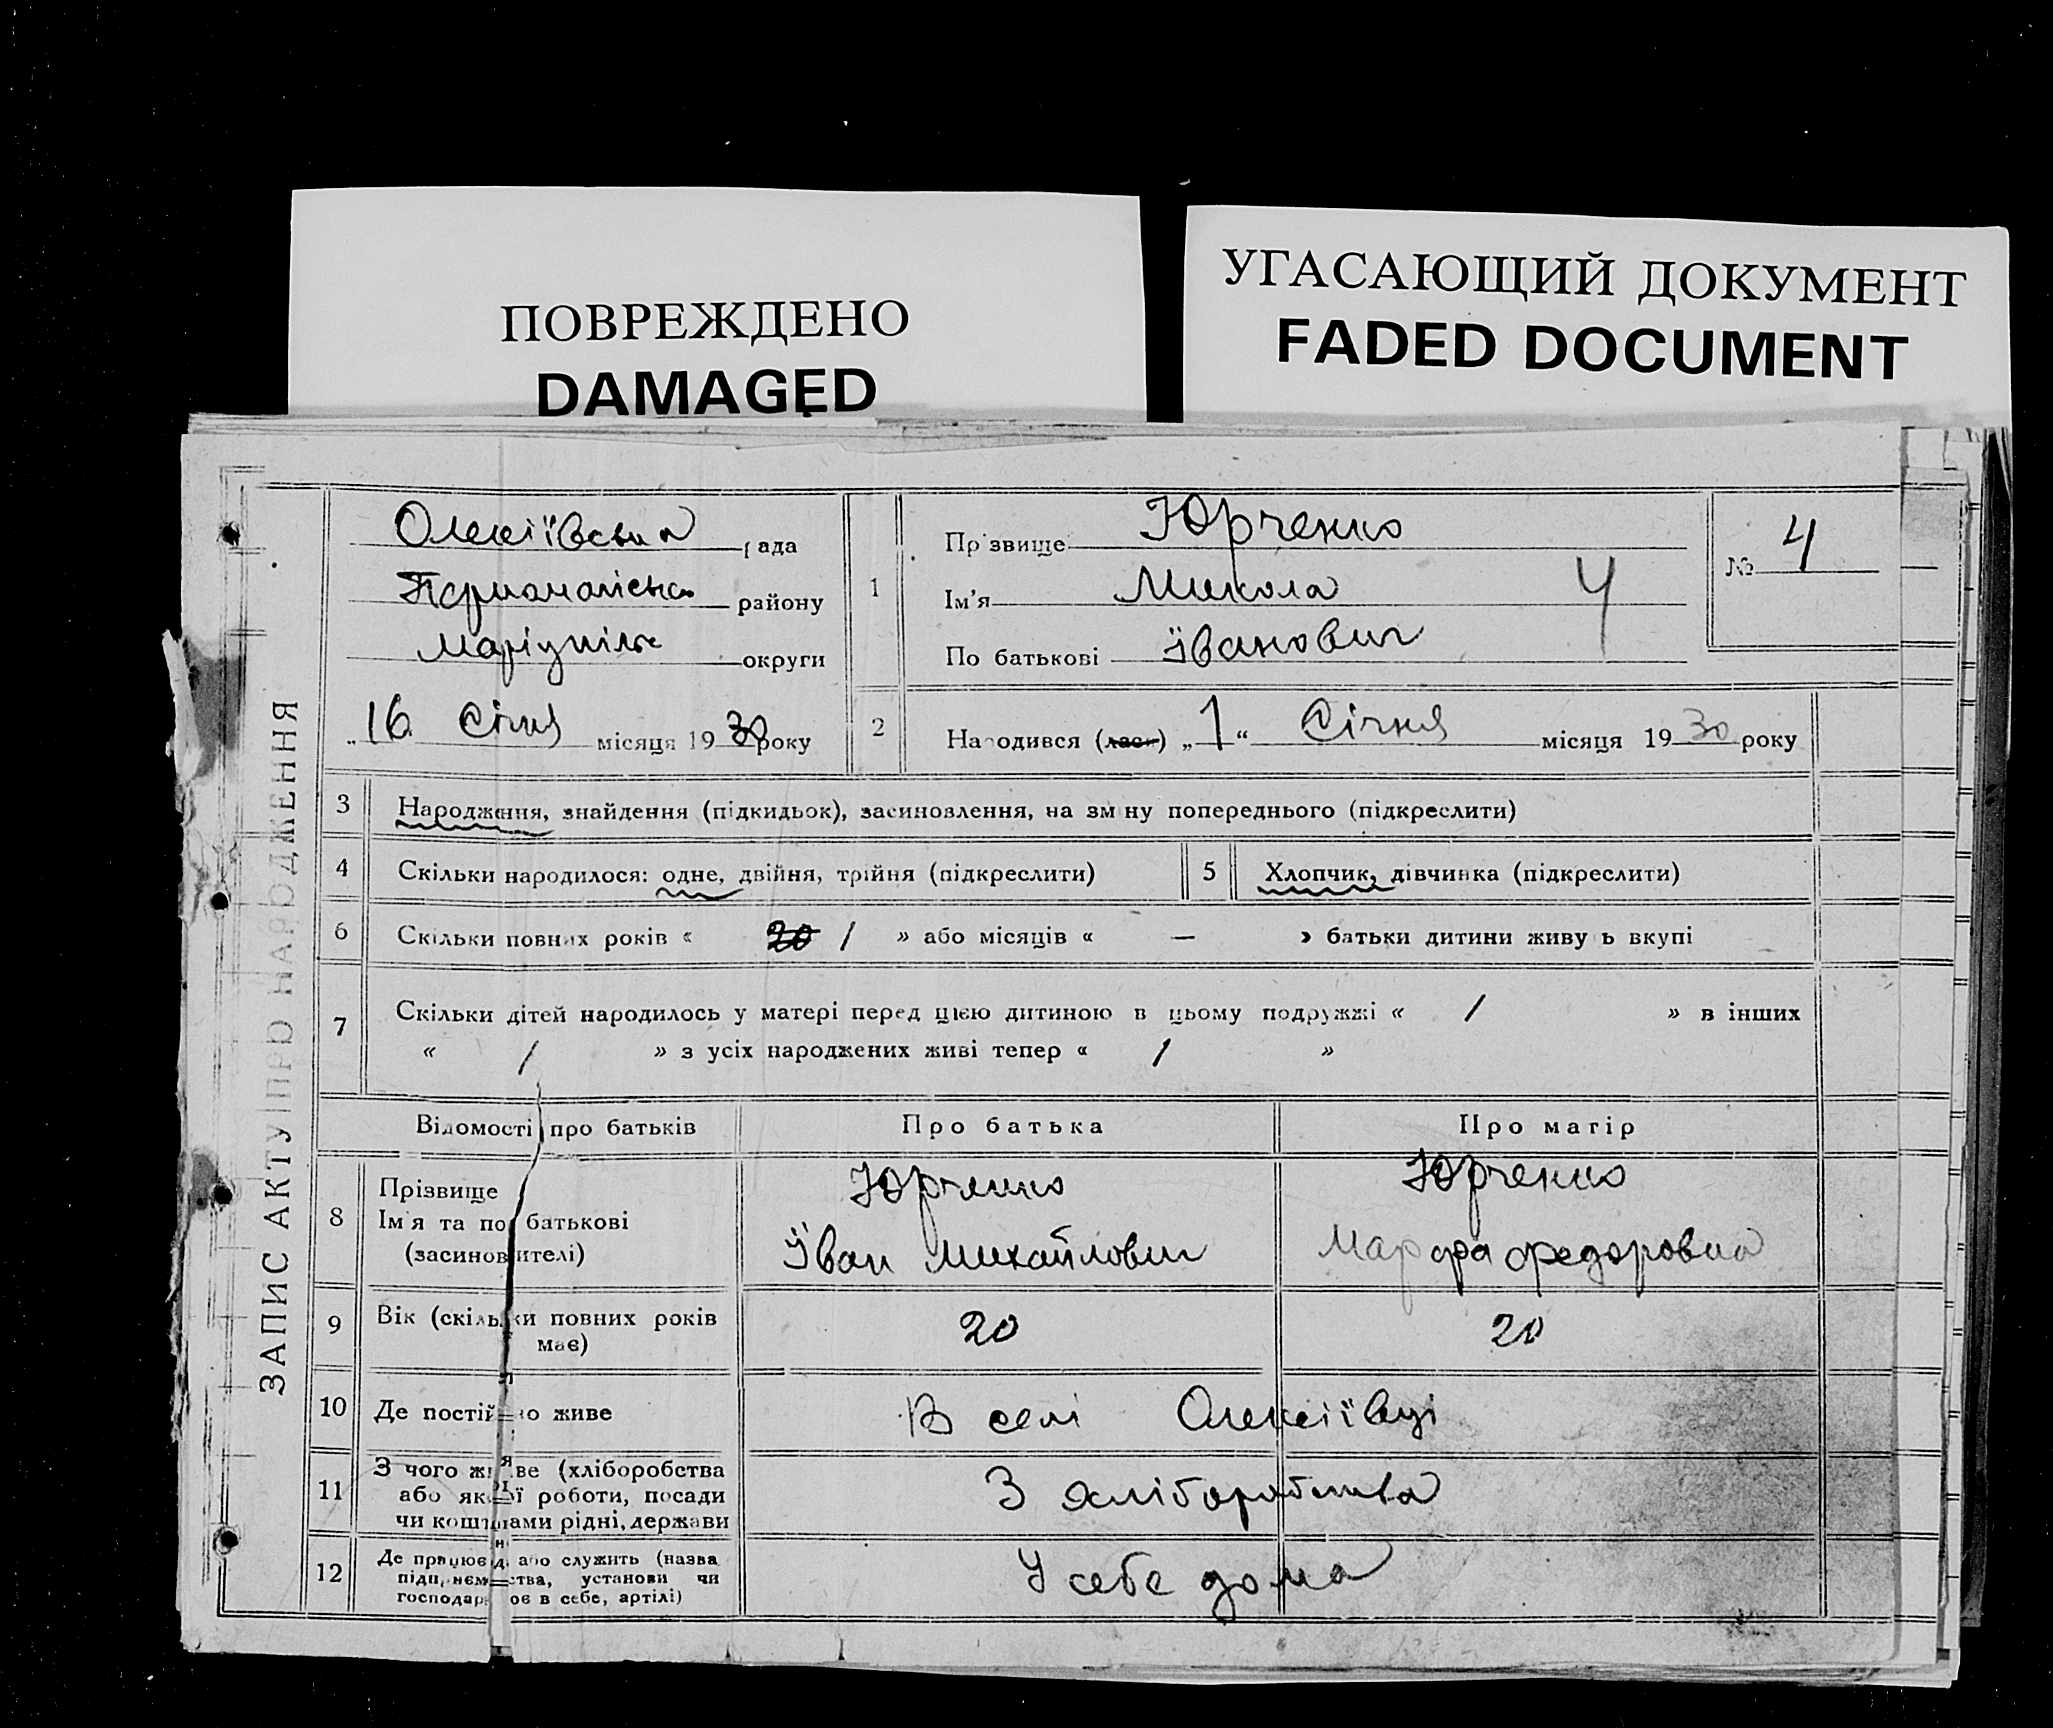 ПОВРЕЖДЕНО
DAMAGED
УГАСАЮЩИЙ ДОКУМЕНТ
FADED DOCUMENT
ЗАПИС АКТУ ПРО НАРОДЖЕННЯ
Олексіївська рада
району
Маріупільс округи
„16 Січня місяця 1930 року
1
Прізвище Юрченко
Ім'я Микола Ч
По батькові Іванович
№ 4
2 Народився (лась) „1“ Січня місяця 1930 року
3 Народження, знайдення (підкидьок), засиновлення, на зміну попереднього (підкреслити)
4 Скільки народилося: одне, двійня, трійня (підкреслити)
5 Хлопчик, дівчинка (підкреслити)
6 Скільки повних років « 20 1 » або місяців « — » батьки дитини живуть вкупі
7 Скільки дітей народилось у матері перед цією дитиною в цьому подружжі « / » в інших
« / » з усіх народжених живі тепер « / »
Відомості про батьків Про батька Про матір
8 Прізвище Юрченко Юрченко
Ім'я та по батькові Іван Михайлович Марфа Федоровна
(засиновителі)
9 Вік (скільки повних років 20 20
має)
10 Де постійно живе В селі Олексіївці
11 З чого живе (хліборобства
або якої роботи, посади З хліборобства
чи коштами рідні, держави
12 Де працює або служить (назва
підприємства, установи чи У себе дома
господарює в себе, артілі)